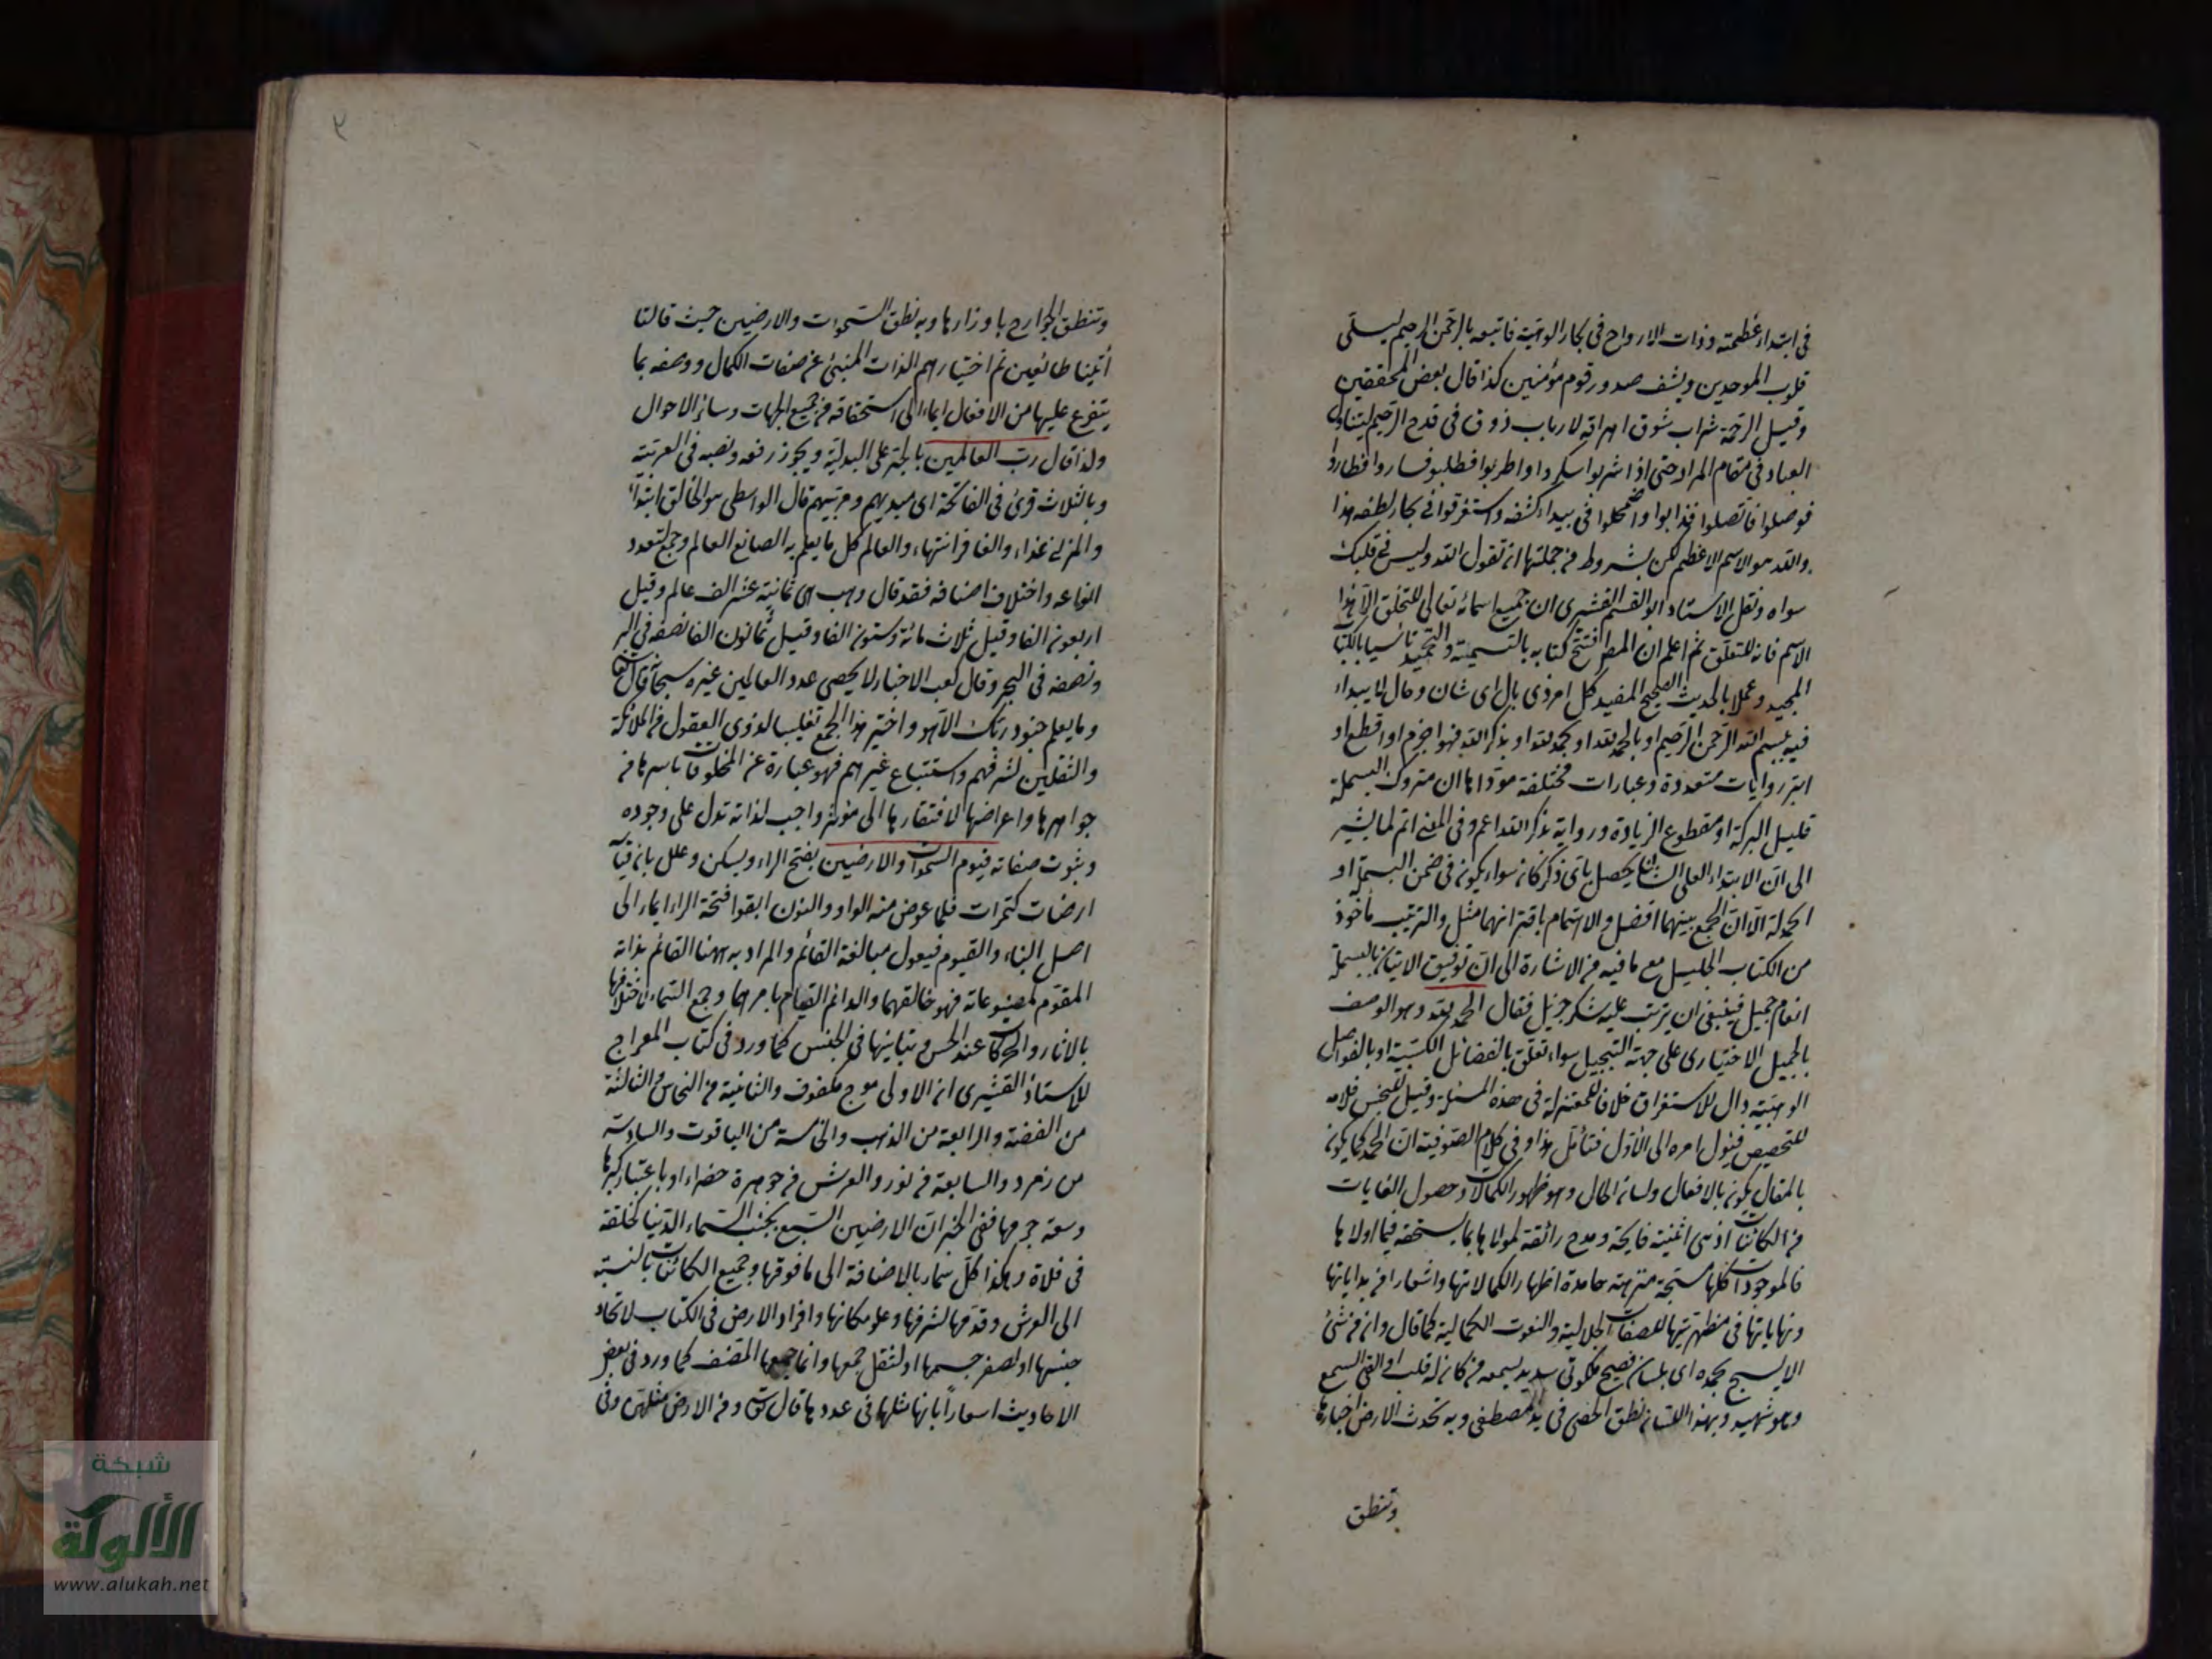 في ابتداء عظمته وذات الارواح في بحار الوهيته فاتبعه بالرحمن الرحيم ليسلى
قلوب الموحدين ويشف صدور قوم مؤمنين كذا قال بعض المحققين
وقيل الرحمة شراب شوق اهراقه لارباب ذوق في قدح الرحيم ليتناول
العباد في مقام المراد حتى اذا شربوا سكروا واطربوا فطلبوا فساروا فطاروا
فوصلوا فاتصلوا فذابوا واضمحلوا في بيداء كشفه واستغرقوا في بحار لطفه هذا
والله هو الاسم الاعظم لكن بشروط من جملتها ان تقول الله وليس في قلبك
سواه ونقل الاستاد ابو القسم القشيري ان جميع اسمائه تعالى للتخلق الا هذا
الاسم فانه للتعلق ثم اعلم ان المص افتتح كتابه بالتسمية والتحميد تأسيا بالكتاب
المجيد وعملا بالحديث الصحيح المفيد كل امر ذى بال اى شان وحال لا يبداء
فيه ببسم الله الرحمن الرحيم او بالحمد لله او بحمد الله او بذكر الله فهو اجزم او اقطع او
ابتر روايات متعددة وعبارات مختلفة مؤداها ان متروك البسملة
قليل البركة او مقطوع الزيادة ورواية بذكر الله اعم وفي المعنى اتم لما يشير
الى ان الابتداء العلى الشان يحصل باى ذكر كان سواء يكون في ضمن البسملة او
الحمدلة الا ان الجمع بينهما افضل والاهتمام باقترانهما مثل والترتيب مأخوذ
من الكتاب الجليل مع ما فيه من الاشارة الى ان توفيق الاتيان بالبسملة
انعام جميل فينبغي ان يرتب عليه شكر جزيل فقال الحمد لله وهو الوصف
بالجميل الاختياري على جهة التبجيل سواء تعلق بالفضائل الكسبية او بالفواضل
الوهبية وال للاستغراق خلافا للمعتزلة في هذه المسئلة وقيل للجنس فلامه
للتخصيص فيئول امره الى الاول فتأمل هذا وفي كلام الصوفية ان الحمد كما يكون
بالمقال يكون بالافعال ولسان الحال وهو ظهور الكمالات وحصول الغايات
من الكائنات اذ هى اثنية فايحة ومدح رائقة لمولاها بما يستحقه فيما اولاها
فالموجودات كلها مسبحة منزهة حامدة اظهارا لكمالاتها واشعارا من بداياتها
ونهاياتها في مظهريتها للصفات الجلالية والنعوت الكمالية كما قال وان من شئ
الا يسبح بحمده اى بلسان فصيح ملكوتى سديد يسمعه من كان له قلب او القى السمع
وهو شهيد وبهذا اللسان نطق الحصى في يد المصطفى وبه تحدث الارض اخبارها
وتنطق
٢
وتنطق الجوارح باوزارها وبه نطق السموات والارضين حيث قالتا
أتينا طائعين ثم اختيار اسم الذات المنبئ عن صفات الكمال ووصفه بما
يتفرع عليها من الافعال ايماء الى استحقاقه من جميع الجهات وسائر الاحوال
ولذا قال رب العالمين بالجر على البدلية ويجوز رفعه ونصبه في العربية
وبالثلاث قرئ في الفاتحة اى سيدهم ومربيهم قال الواسطى هو الخالق ابتداء
والمربي غذاء والغافر انتهاء والعالم كل ما يعلم به الصانع العالم وجمع لتعدد
انواعه واختلاف اصنافه فقد قال وهب هى ثمانية عشر الف عالم وقيل
اربعون الفا وقيل ثلاث مائة وستون الفا وقيل ثمانون الفا نصفه في البر
ونصفه في البحر وقال كعب الاحبار لا يحصى عدد العالمين غيره سبحانه قال تعالى
وما يعلم جنود ربك الا هو واختير هذا الجمع تغليبا لذوى العقول من الملائكة
والثقلين لشرفهم واستتباع غيرهم فهو عبارة عن المخلوقات باسرها من
جواهرها واعراضها لافتقارها الى مؤثر واجب لذاته تدل على وجوده
وثبوت صفاته قيوم السموات والارضين بفتح الراء ويسكن وعلل بان قياسه
ارضات كتمرات فلما عوض منه الواو والنون ابقوا فتحة الراء ايماء الى
اصل البناء والقيوم فيعول مبالغة القائم والمراد به ههنا القائم بذاته
المقوم لمصنوعاته فهو خالقهما والدائم القيام بامرهما وجمع السماء لاختلافها
بالاثار والحركات عند الحس وتباينها في الجنس كما ورد في كتاب المعراج
للاستاذ القشيري ان الاولى موج مكفوف والثانية من النحاس والثالثة
من الفضة والرابعة من الذهب والخامسة من الياقوت والسادسة
من زمرد والسابعة من نور والعرش من جوهرة خضراء او باعتبار كبرها
وسعة جرمها ففي الخبر ان الارضين السبع بجنب السماء الدنيا كحلقة
في فلاة وهكذا كل سماء بالاضافة الى ما فوقها وجميع الكائنات بالنسبة
الى العرش وقدمها لشرفها وعلو مكانها وافراد الارض في الكتاب لاتحاد
جنسها او لصغر جسمها او لثقل جمعها وانما جمعها المصنف كما ورد في بعض
الاحاديث اسعارا بانها مثلها في عددها قال تعالى ومن الارض مثلهن وفي
شبكة
الألوكة
www.alukah.net